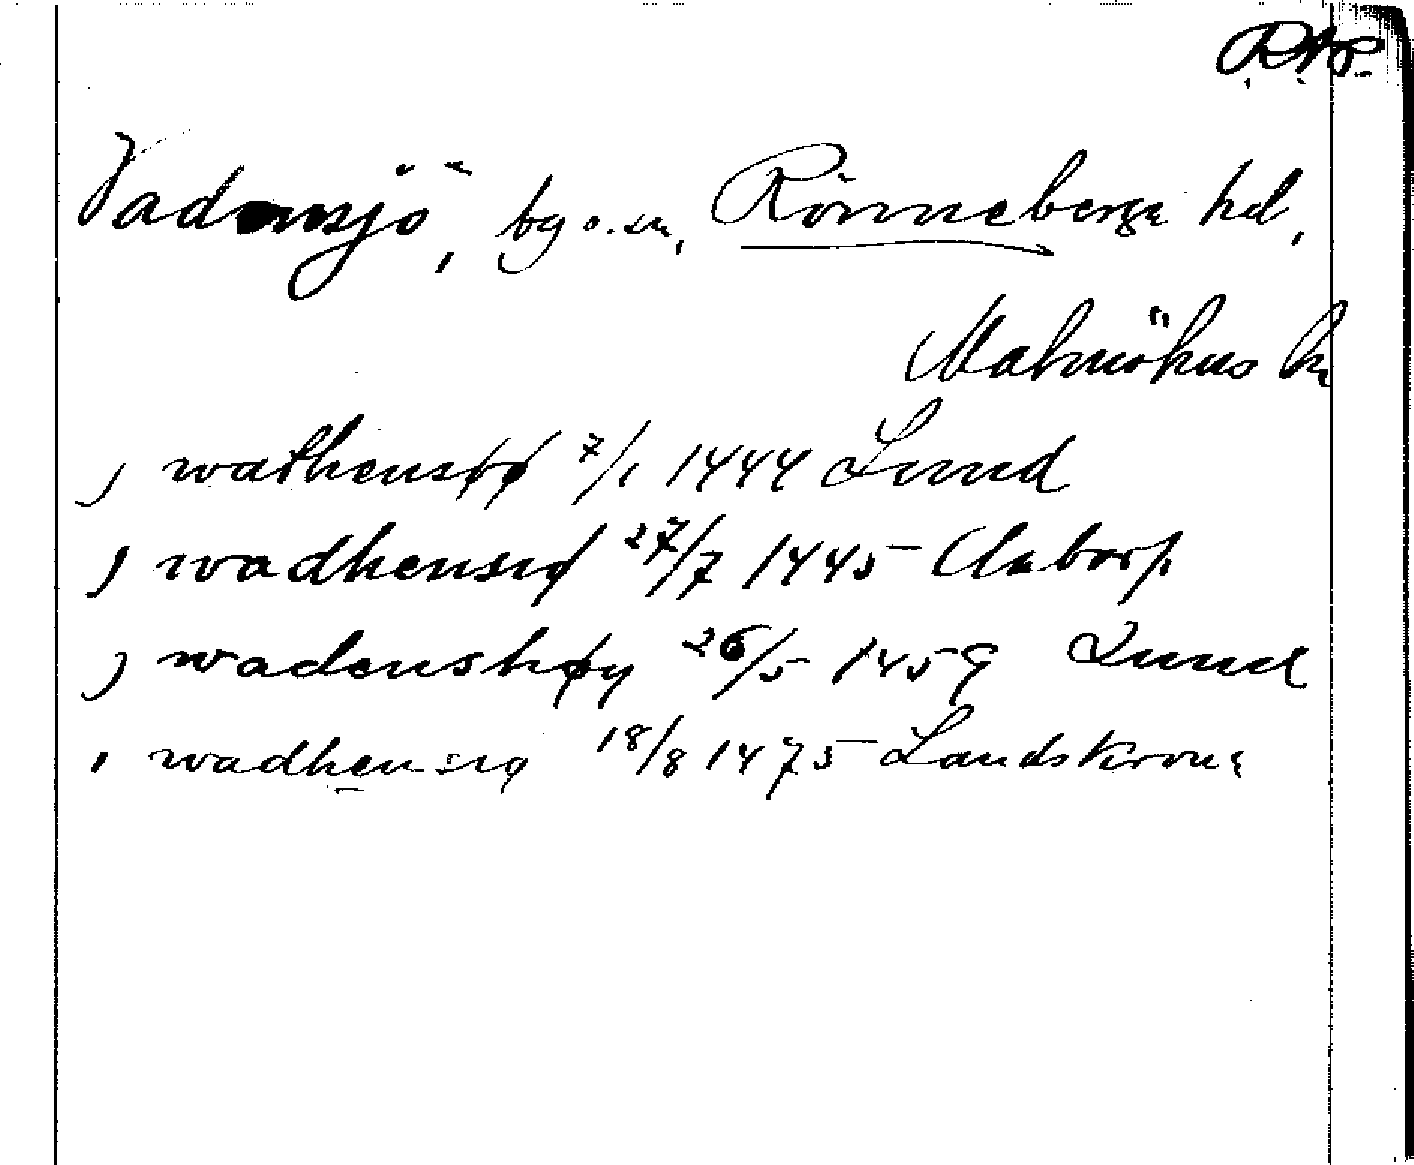 Vadensjö, by o. sn, Rönneberga hd,
Malmöhus ln
, wathensøø 7/1 1444 Lund
, wadhensiø 27/7 1445 Aaborp
, wadenshøy 26/5 1459 Lund
, wadhensiø 18/8 1475 Landskrona